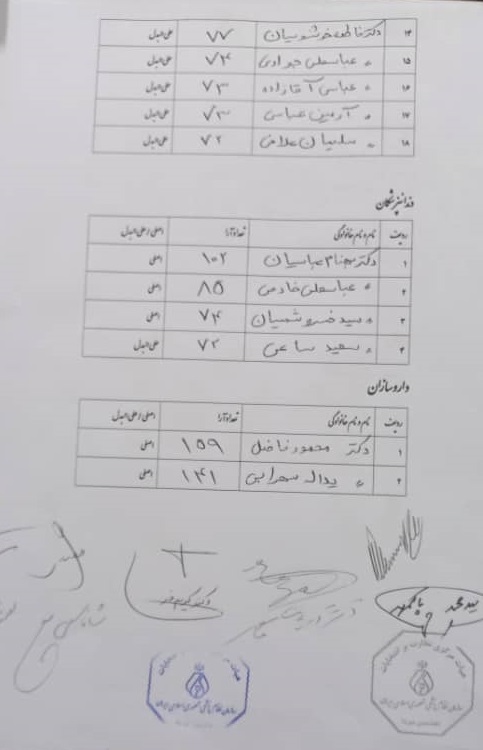 ۱۴ دکتر فاطمه خرشوسیان ۷۷ علی‌البدل
۱۵ " عباسعلی جوادی ۷۴ علی‌البدل
۱۶ " عباس آقازاده ۷۳ علی‌البدل
۱۷ " آرمین عباسی ۷۳ علی‌البدل
۱۸ " سلیمان غلامی ۷۲ علی‌البدل
دندانپزشکان
ردیف نام و نام خانوادگی تعداد آرا اصلی / علی‌البدل
۱ دکتر بهنام عباسیان ۱۰۲ اصلی
۲ " عباسعلی خادمی ۸۵ اصلی
۳ " سید خسرو شمسیان ۷۴ اصلی
۴ " سعید ساعی ۷۲ علی‌البدل
داروسازان
ردیف نام و نام خانوادگی تعداد آرا اصلی / علی‌البدل
۱ دکتر محمود فاضل ۱۵۹ اصلی
۲ " یداله سهرابی ۱۴۱ اصلی
سید محمد
هیات مرکزی نظارت بر انتخابات
سازمان نظام پزشکی جمهوری اسلامی ایران
سازمان نظام پزشکی جمهوری اسلامی ایران